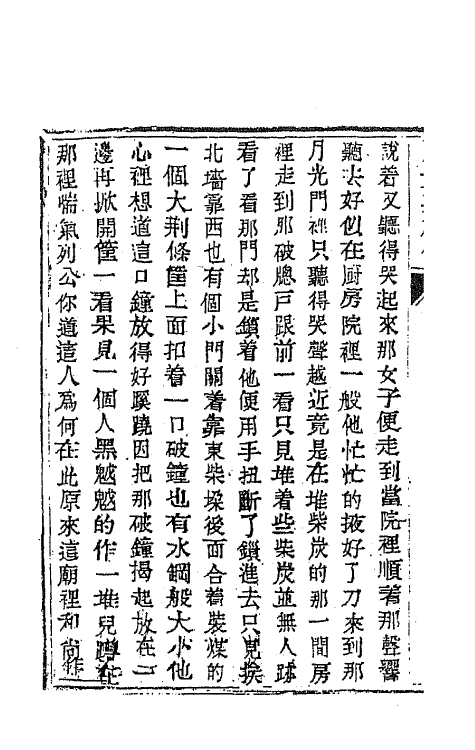 說着又聽得哭起來那女子便走到當院裡順著那聲響
聽去好似在厨房院裡一般他忙忙的掖好了刀來到那
月光門裡只聽得哭聲越近竟是在堆柴炭的那一間房
裡走到那破牕戸跟前一看只見堆着些柴炭並無人跡
看了看那門却是鎖着他便用手扭斷了鎖進去只見挨
北墻靠西也有個小門關着靠東柴垜後面合着裝煤的
一個大荆條筐上面扣着一口破鐘也有水鋼般大小他
心裡想道這口鐘放得好蹊蹺因把那破鐘揭起放在一
邊再掀開筐一看果見一個人黑魆魆的作一堆兒蹲在
那裡喘氣列公你道這人爲何在此原來這廟裡和尚作